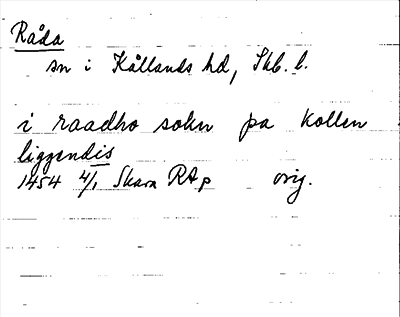 Råda
sn i Kållands hd, Skb. l.
i raadho sokn pa kollen
liggendis
1454 4/1 Skara RAp orig.